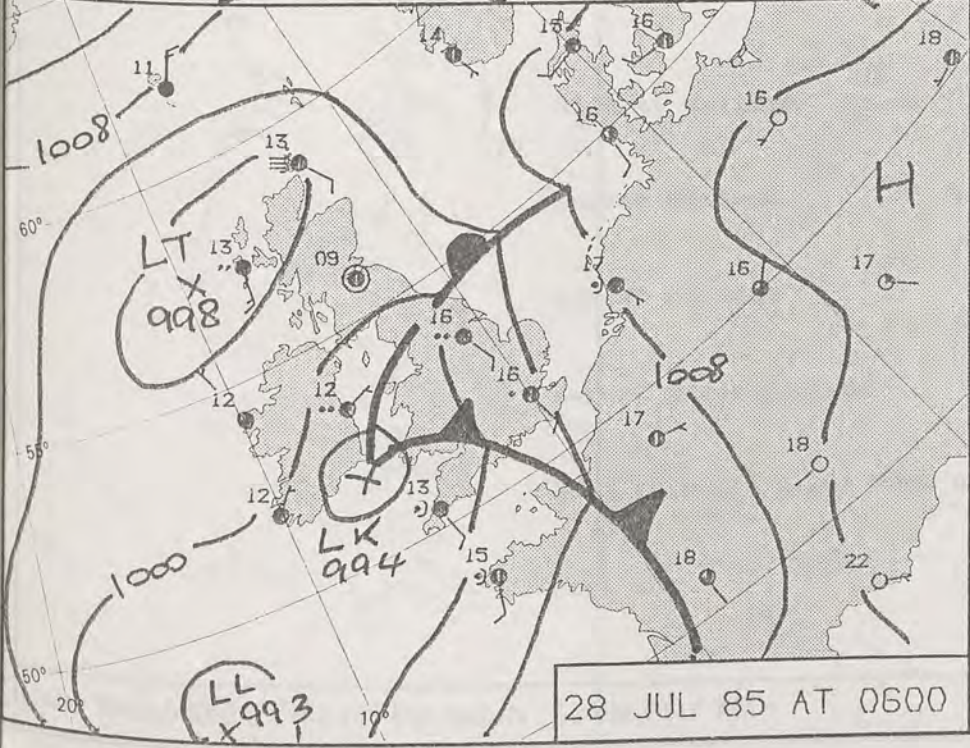 14
15
16
18
11
F
16
1008
13
16
H
60°
LT
13
998
09
17
16
17
16
16
1008
12
12
55°
17
18
12
13
LK
994
15
1000
18
22
50°
20°
LL
993
10°
28 JUL 85 AT 0600